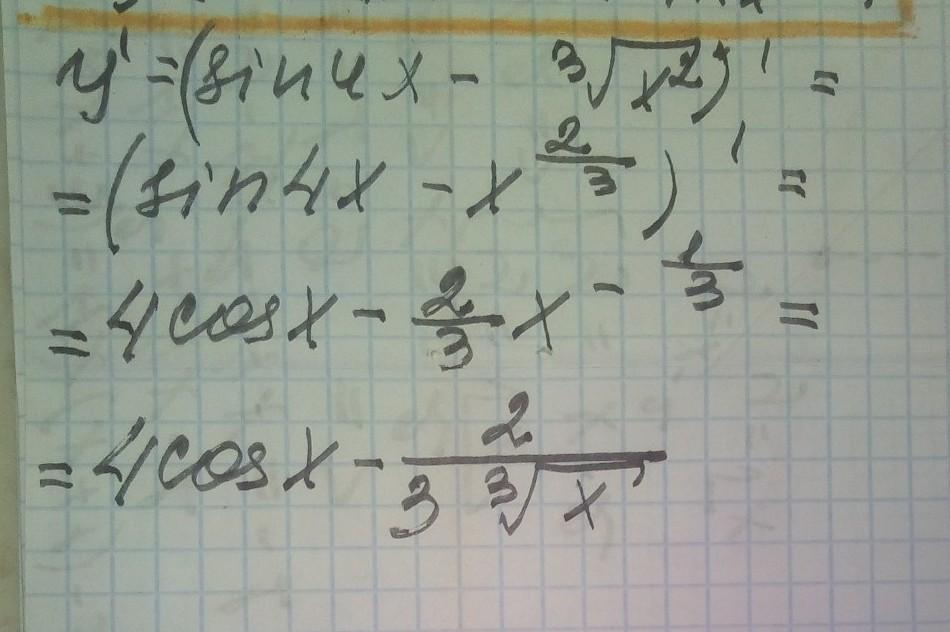 y' = (sin 4x - ∛(x²))' =
= (sin 4x - x^(2/3))' =
= 4 cos x - 2/3 x^(-1/3) =
= 4 cos x - 2/(3 ∛x)